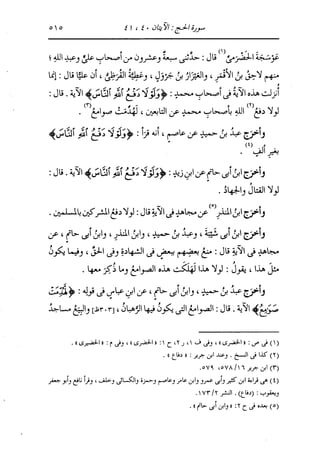 سورة الحج : الآيتان ٤٠ ، ٤١
٥١٥
عَوْسَجَةَ الحَضْرَمِىِّ(١) قال : حدَّثنى سبعةٌ وعشرون من أصحابِ علىٍّ وعبدِ اللهِ ؛
منهم لاحقُ بنُ الأَقْمَرِ ، والعَيْزارُ بنُ جَرْوَلٍ ، وعطيةُ القُرَظىُّ ، أن عليًّا قال : إنما
أُنزلت هذه الآيةُ فى أصحابِ محمدٍ : ﴿ وَلَوْلَا دَفْعُ اللَّهِ النَّاسَ ﴾ الآية . قال :
لولا دفعُ(٢) اللهِ بأصحابِ محمدٍ عن التابعين ، لهُدِّمَتْ صوامعُ(٣) .
وأخرَج عبدُ بنُ حميدٍ عن عاصمٍ ، أنه قرَأ : ﴿ وَلَوْلَا دَفْعُ اللَّهِ النَّاسَ ﴾
بغيرِ ألفٍ(٤) .
وأخرَج ابنُ أبى حاتمٍ عن ابنِ زيدٍ : ﴿ وَلَوْلَا دَفْعُ اللَّهِ النَّاسَ ﴾ الآية . قال :
لولا القتالُ والجهادُ .
وأخرَج ابنُ المنذرِ(٥) عن مجاهدٍ فى الآيةِ قال : لولا دفعُ المشركين بالمسلمين .
وأخرَج ابنُ أبى شيبةَ ، وعبدُ بنُ حميدٍ ، وابنُ المنذرِ ، وابنُ أبى حاتمٍ ، عن
مجاهدٍ فى الآيةِ قال : منَع بعضَهم ببعضٍ فى الشهادةِ وفى الحقِّ ، وفيما يكونُ
مثلَ هذا ، يقولُ : لولا هذا لهلَكت هذه الصوامعُ وما ذُكِر معها .
وأخرَج عبدُ بنُ حميدٍ ، وابنُ أبى حاتمٍ ، عن ابنِ عباسٍ فى قولِه : ﴿ لَّهُدِّمَتْ
صَوَامِعُ ﴾ الآية . قال : الصوامعُ التى يكونُ فيها الرهبانُ ، [٣٠٣ظ] والبِيَعُ مساجدُ
(١) فى ص : « الحضرى » ، وفى ف ١ ، ر ٢ ، ح ١ : « الحضرى » ، وفى م : « الحضيرى » .
(٢) كذا فى النسخ . وعند ابن جرير : « دفاع » .
(٣) ابن جرير ١٦/ ٥٧٨، ٥٧٩.
(٤) هى قراءة ابن كثير وأبى عمرو وابن عامر وعاصم وحمزة والكسائى وخلف ، وقرأ نافع وأبو جعفر
ويعقوب : (دفاع) . النشر ٢/ ١٧٣.
(٥) بعده فى ح ٢: « وابن أبى حاتم » .